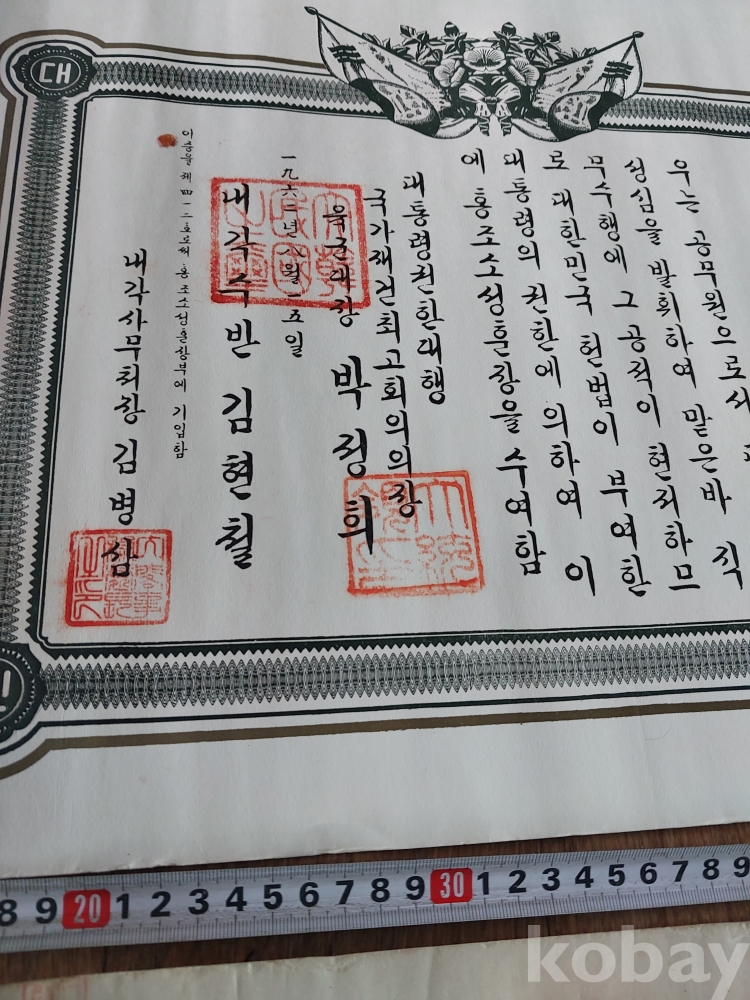 대
우는 공무원으로서
성심을 발휘하여 맡은바 직
무수행에 그 공적이 현저하므
로 대한민국 헌법이 부여한
대통령의 권한에 의하여 이
에 홍조소성훈장을 수여함
대통령권한대행
국가재건최고회의의장
육군대장 박정희
一九六二년八월一五일
내각수반 김현철
이증을 제四一二호로써 홍조소성훈장부에 기입함
내각사무처장 김병삼
인
8 9 20 1 2 3 4 5 6 7 8 9 30 1 2 3 4 5 6 7 8 9
kobay